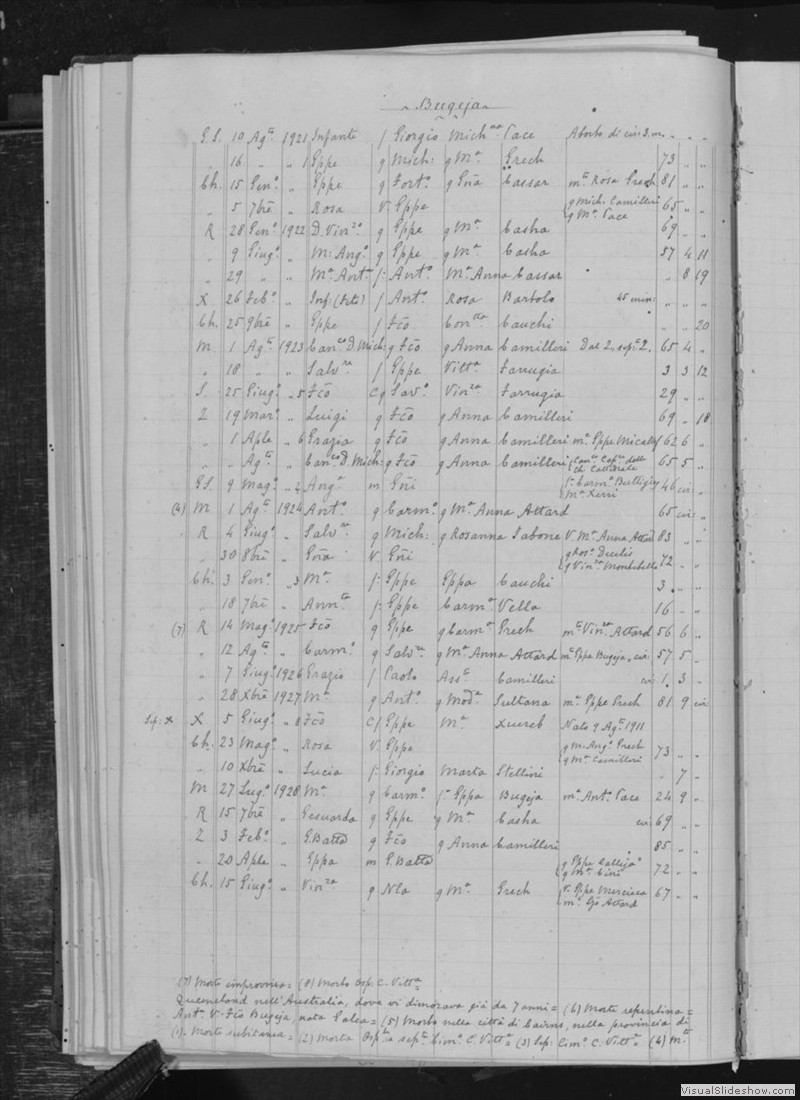 Bugeja
G.S. 10 Agto 1921 Infante f Giorgio Michna Pace Aborto di cir: 3. m. „ „ „
„ 16 „ „ 1 Gppe g Mich: g Ma Grech 73 „ „
Ch. 15 Geno „ Gppe g Forto g Gña Cassar mto Rosa Grech 81 „ „
„ 5 7bre „ Rosa V. Gppe g Mich. Camilleri 65 „ „
g Ma Pace
R 28 Geno 1922 D. Vinzo g Gppe g Ma Casha 69 „ „
„ 9 Giugo „ M: Ango g Gppe g Ma Casha 57 4 11
„ 29 „ „ Ma Anta f: Anto Ma Anna Cassar „ 8 19
X 26 Febo „ Inf: (Feto) f Anto Rosa Bartolo 45 min: „ „ „
Ch. 25 9bre „ Gppe f Fco Conctta Cauchi „ „ 20
M 1 Agto 1923 Canco D. Mich: g Fco g Anna Camilleri Dal 2. sepo 2. 65 4 „
„ 18 „ „ Salvre f Gppe Vitta Farrugia 3 3 12
S. 25 Giugo „ 5 Fco cg Savo Vinza Farrugia 29 „ „
Z 19 Maro „ Luigi g Fco g Anna Camilleri 69 „ 18
„ 1 Aple „ 6 Grazia g Fco g Anna Camilleri ma Gppe Micallef 62 6 „
„ „ Agto „ Canco D. Mich: g Fco g Anna Camilleri 65 5 „
G.S. 9 Mago „ 2 Anga m Gñi f: Carmo Buttigieg 46 cir: „
Ma Xerri
(4) M 1 Agto 1924 Anto g Carmo g Ma Anna Attard 65 cir: „
R 4 Giugo „ Salvre g Mich: g Rosanna Sabone V Ma Anna Attard 83 „ „
„ 30 8bre „ Gña V. Gñi 72 „ „
Ch. 3 Geno „ 3 Ma f: Gppe Gppa Cauchi 3 „ „
„ 18 7bre „ Annta f: Gppe Carma Vella 16 „ „
(7) R 14 Mago 1925 Fco g Gppe g Carma Grech mto Vinza Attard 56 6 „
„ 12 Agto „ Carmo g Salvre g Ma Anna Attard mo Gppa Bugeja, cir: 57 5 „
„ 7 Giugo 1926 Grazio f Paolo Assta Camilleri cir: 1. 3 „
„ 28 Xbre 1927 Ma g Anto g Moda Sultana ma Gppe Grech 81 9 cir:
Sep: X X 5 Giugo „ 8 Fco cf Gppe Ma Xuereb Nato 9 Ago 1911
Ch. 23 Mago „ Rosa V. Gppe g M: Ango Grech 73 „ „
g Ma Camilleri
„ 10 Xbre „ Lucia f: Giorgio Marta Stellini „ 7 „
M 27 Lugo 1928 Ma g Carmo f: Gppa Bugeja ma Anto Pace 24 9 „
R 15 7bre „ Gesuarda g Gppe g Ma Casha cir: 69 „ „
Z 3 Febo „ G. Batta g Fco g Anna Camilleri 85 „ „
„ 20 Aple „ Gppa m G. Batta g Gppe Calleja 72 „ „
g Ma Cini
Ch. 15 Giugo „ Vinza g Nla g Ma Grech V. Gppe Mercieca 67 „ „
mo Gjo Attard
(7) Morte improvvisa = (8) Morto Osp. C. Vitta =
Queensland nell'Australia, dove vi dimorava già da 7 anni = (6) Morte repentina =
Anta V. Fco Bugeja, nata Galea = (5) Morto nella città di Cairns, nella provincia di
(1). Morte subitanea = (2) Morta Osple sepa Cimo C. Vitta = (3) Sep: Cimo C. Vitta = (4) mto
VisualSlideshow.com